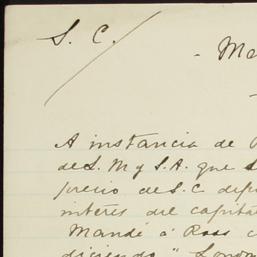 S. C.
- Me
A instancia de
de S. M y S. A. que
precio de S. C
interés del capita
Mandé á Ross
diciendo " Lon